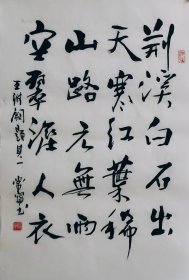 荆溪白石出
天寒红葉稀
山路元無雨
空翠湿人衣
王维阙题其一